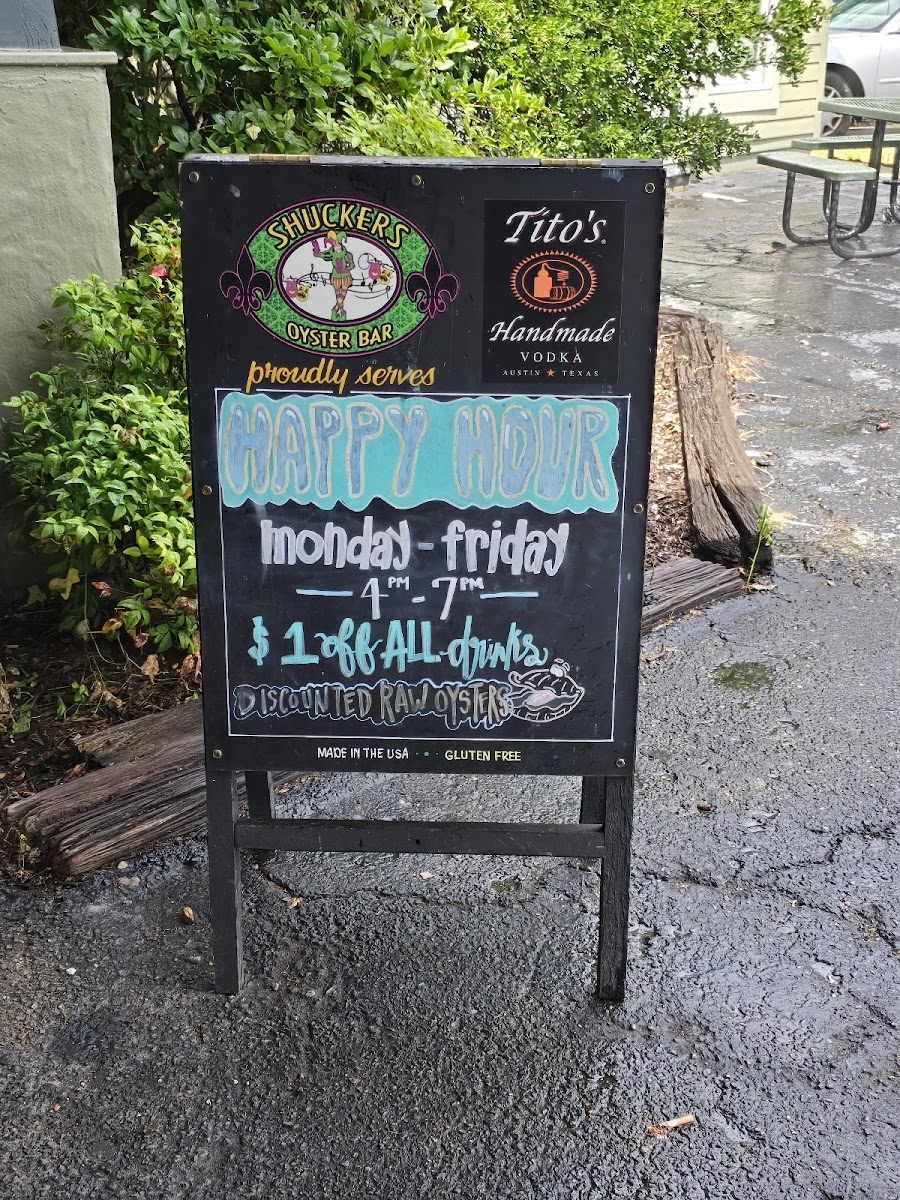 SHUCKERS
OYSTER BAR
proudly serves
Tito's
Handmade
VODKA
AUSTIN ★ TEXAS
HAPPY HOUR
monday - friday
4PM - 7PM
$1 off ALL drinks
DISCOUNTED RAW OYSTERS
MADE IN THE USA • • • GLUTEN FREE